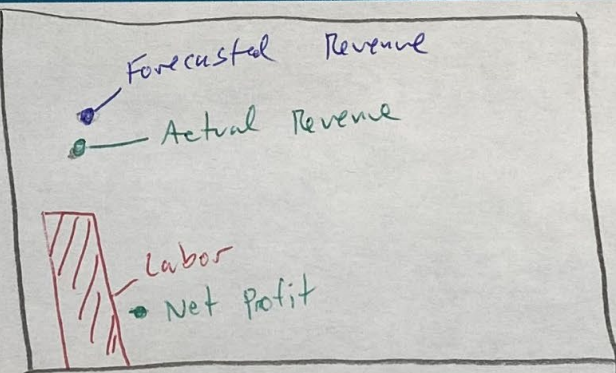 Forecasted Revenue
Actual Revenue
Labor
Net Profit